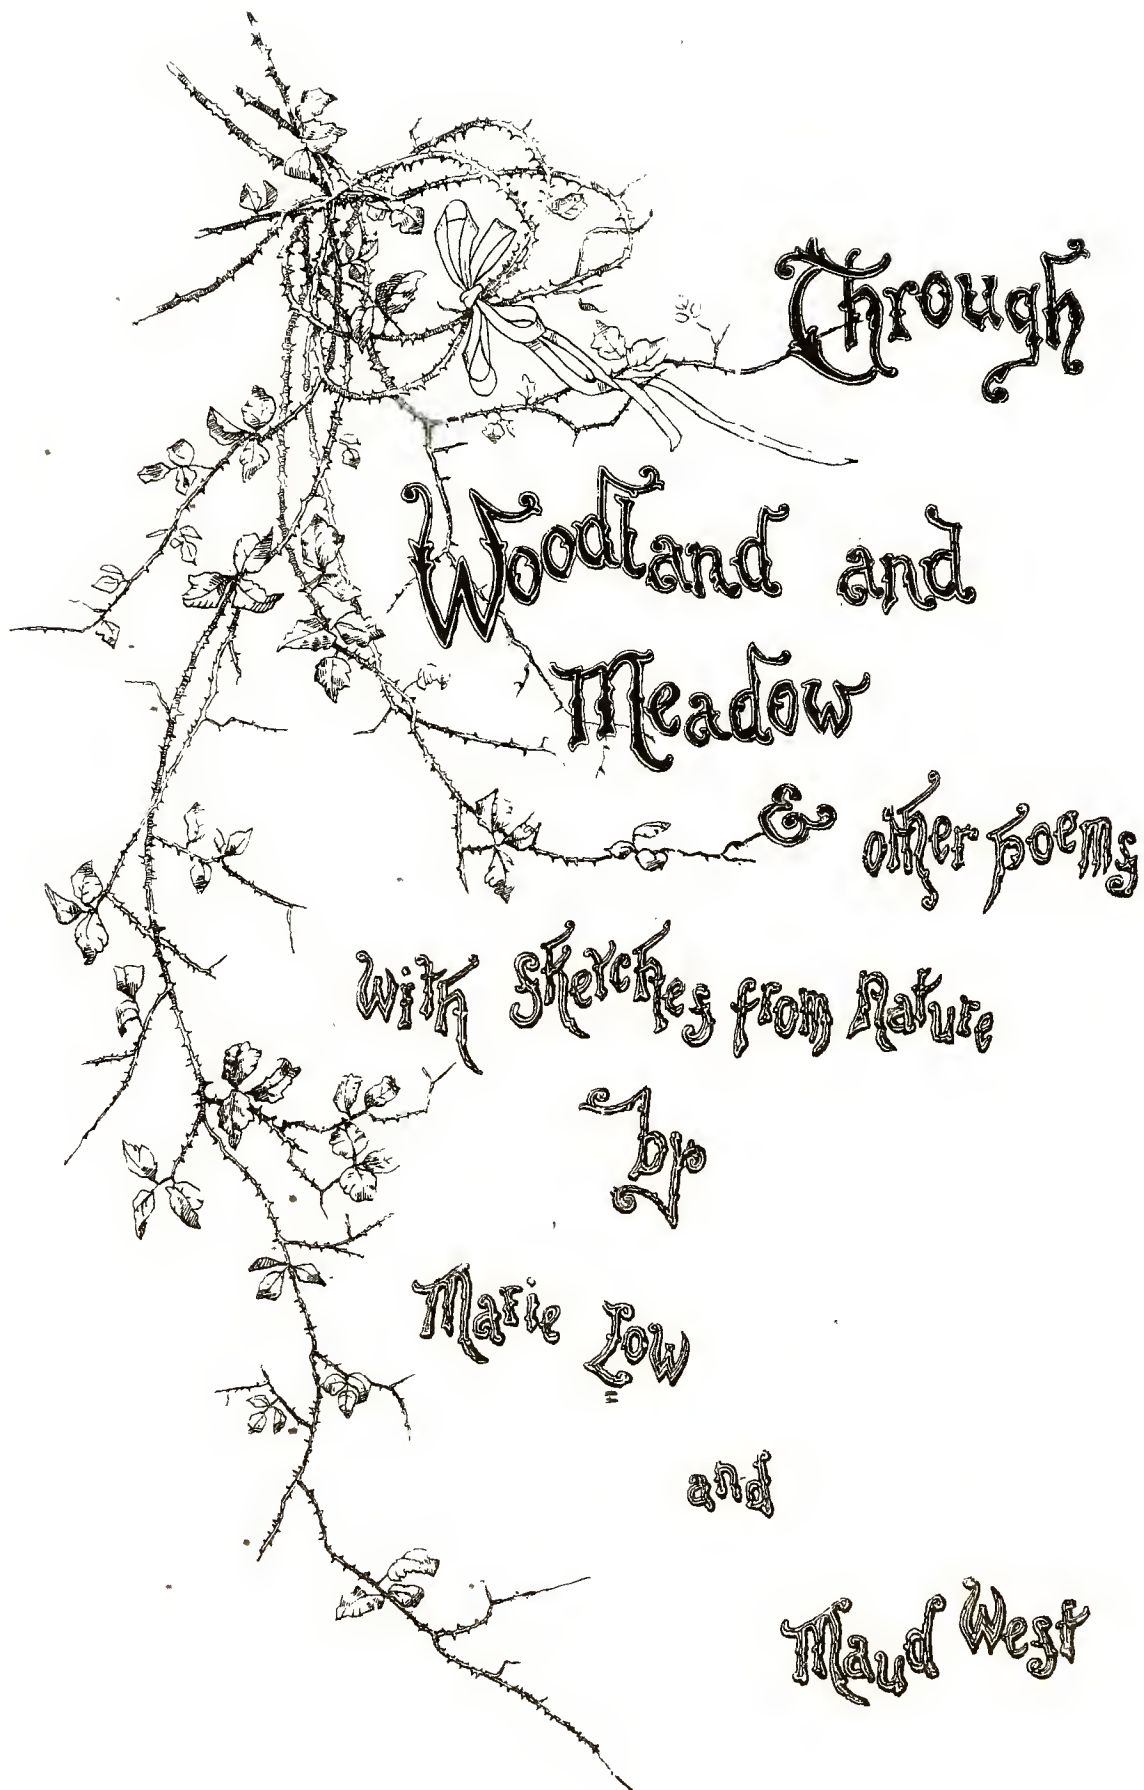 Through
Woodland and
Meadow
& other poems
with sketches from Nature
by
Marie Low
and
Maud West